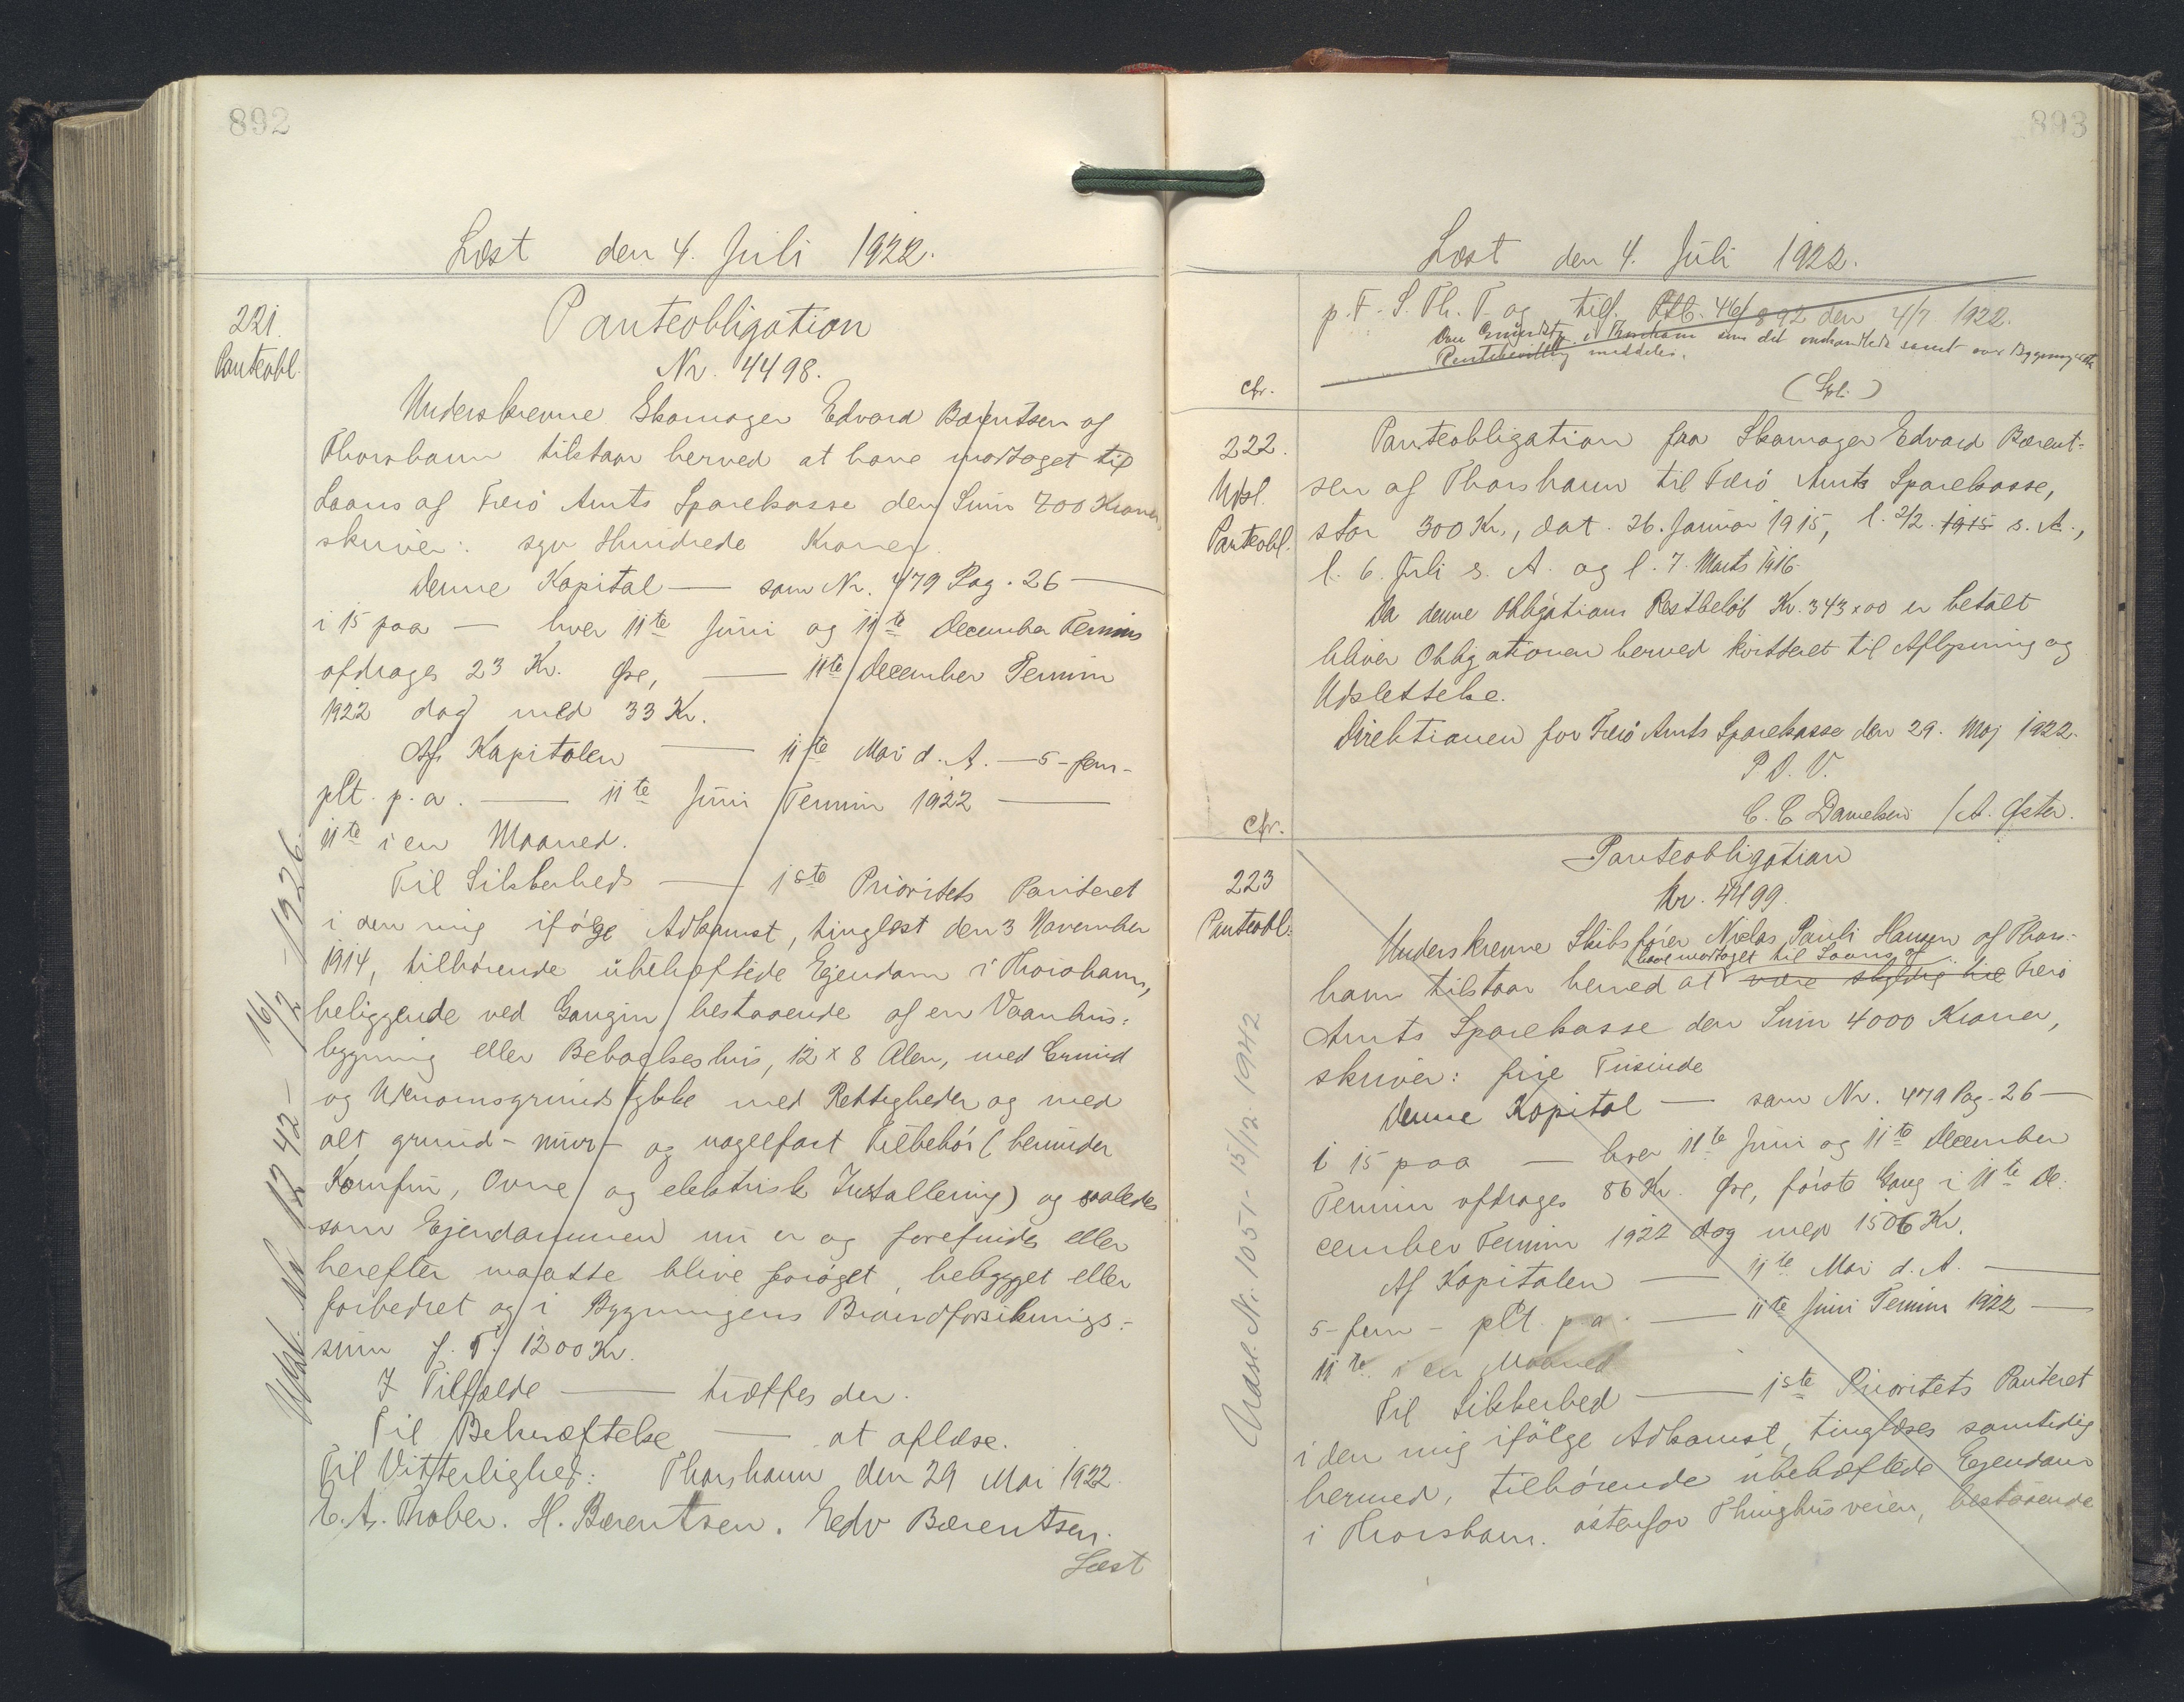 892
Læst den 4. Juli 1922.
221.
Panteobl.
Panteobligation
Nr. 4498.
Underskrevne Skomager Edvard Bærentsen af
Thorshavn tilstaar herved at have modtaget til
Laans af Færö Amts Sparekasse den Sum 700 Kroner,
skriver: syv Hundrede Kroner.
Denne Kapital — som Nr. 479 Pag. 26 —
i 15 paa — hver 11te Juni og 11te December Termin
afdrages 23 Kr. Øre, — 11te December Termin
1922 dog med 33 Kr.
Af Kapitalen — 11te Mai d. A. — 5 - fem -
pCt. p. a. — 11te Juni Termin 1922 —
11te i en Maaned.
Til Sikkerhed — 1ste Prioritets Panteret
i den mig ifölge Adkomst, tinglæst den 3 November
1914, tilhørende ubehæftede Ejendom i Thorshavn,
beliggende ved Gongin bestaaende af en Vaanhus-
bygning eller Beboelseshus, 12 x 8 Alen, med Grund
og Udenomsgrundstykke med Rettigheder og med
alt grund - mur - og nagelfast Tilbehör (herunder
Komfur, Ovne og elektrisk Installering) og saaledes
som Ejendommen nu er og forefindes eller
herefter maatte blive forøget, bebygget eller
forbedret og i Bygningens Brandforsikrings-
sum f. T. 1200 Kr.
I Tilfælde — træffes der.
Til Bekræftelse — at aflæse.
Til Vitterlighed: Thorshavn den 29 Mai 1922.
H. Bærentsen. Edv Bærentsen.
Læst
Udsl. No 1242 - 16/2 - 1926.
893
Læst den 4. Juli 1922.
p. F. S. Th. T. og till. 892 den 4/7 1922.
i Thorshavn som det omhandlede samt over
meddeles.
cfr.
222.
Udsl.
Panteobl.
Panteobligation fra Skomager Edvard Bærent-
sen af Thorshavn til Færö Amts Sparekasse,
stor 300 Kr., dat. 26. Januar 1915, l. 2/2 1915 s. A.,
l. 6. Juli s. A. og l. 7. Marts 1916.
Da denne Obligations Restbeløb Kr. 343 x 00 er betalt
bliver Obligationen herved kvitteret til Aflysning og
Udslettelse.
Direktionen for Færö Amts Sparekasse den 29. Maj 1922.
P. D. V.
C. C Danielsen / A. Øster.
cfr.
223
Panteobl.
Panteobligation
Nr. 4499.
Underskrevne Skibsfører Nielas Pauli Hansen af Thors-
have modtaget til Laans af
havn tilstaar herved at være skyldig til Færö
Amts Sparekasse den Sum 4000 Kroner,
skriver: fire Tusinde
Denne Kapital — som Nr. 479 Pag. 26 —
i 15 paa — hver 11te Juni og 11te December
Termin afdrages 86 Kr. Øre, første Gang i 11te De-
cember Termin 1922 dog med 1506 Kr.
Af Kapitalen — 11te Mai d. A. —
5 - fem - pCt. p. a. — 11te Juni Termin 1922 —
11te i en Maaned
Til Sikkerhed — 1ste Prioritets Panteret
i den mig ifölge Adkomst, tinglæses samtidig
hermed, tilhörende ubehæftede Ejendom
i Thorshavn. östenfor Thinghusveien, bestaaende
Udsl. Nr. 1051 - 15/12 1942